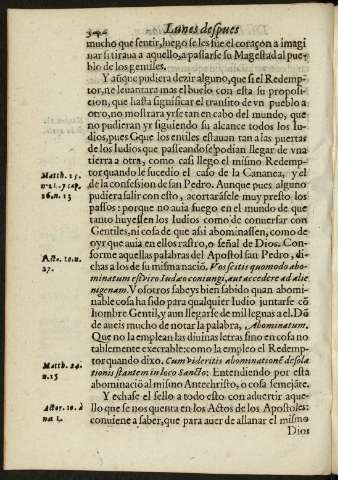 Lunes despues
mucho que sentir, luego se les fue el coraçon a imagi
nar si tiraua a aquello, a passarse su Magestad al pue-
blo de los gentiles.
Y aũque pudiera dezir alguno, que si el Redemp-
tor, ne leuantara mas el buelo con esta su proposi-
cion, que hasta significar el transito de vn pueblo a
otro, no mostrara yrse tan en cabo del mundo, que
no pudieran yr siguiendo su alcance todos los Iu-
dios, pues Gque los entiles estauan tan a las puertas
de los Iudios que passeandose podian llegar de vna
tierra a otra, como casi llego el mismo Redemp-
tor quando le sucedio el caso de la Cananea, y el
de la confession de san Pedro. Aunque pues alguno
pudiera salir con esto, acortarasele muy presto los
passos: porque no auia fuego en el mundo de que
tanto huyessen los Iudios como de conuersar con
Gentiles, ni cosa de que assi abominassen, como de
oyr que auia en ellos rastro, o señal de Dios. Con-
forme aquellas palabras del Apostol san Pedro, di-
chas a los de su misma nació. Vos scitis quomodo abo-
minatum est viro Iudæo coniungi, aut accedere ad alie
nigenam. Vosotros sabeys bien sabido quan abomi-
nable cosa ha sido para qualquier Iudio juntarse cõ
hombre Gentil, y aun llegarse de mil leguas a el. Dõ
de aueis mucho de notar la palabra, Abominatum.
Que no la emplean las diuinas letras sino en cosa no
tablemente execrable: como la empleo el Redemp-
tor quando dixo. Cum videritis abominationẽ desola
tionis stantem in loco Sancto: Entendiendo por esta
abominació al mismo Antechristo, o cosa semejãte.
Y echase el sello a todo esto con aduertir aque-
llo que se nos quenta en los Actos de los Apostoles:
conuiene a saber, que para auer de allanar el mismo
Dios
Matth. 15.
n. 21. y cap.
16. n. 13
Acto. 10. n.
27.
Matth. 24.
n. 15
Actor. 10. à
nu. 1.